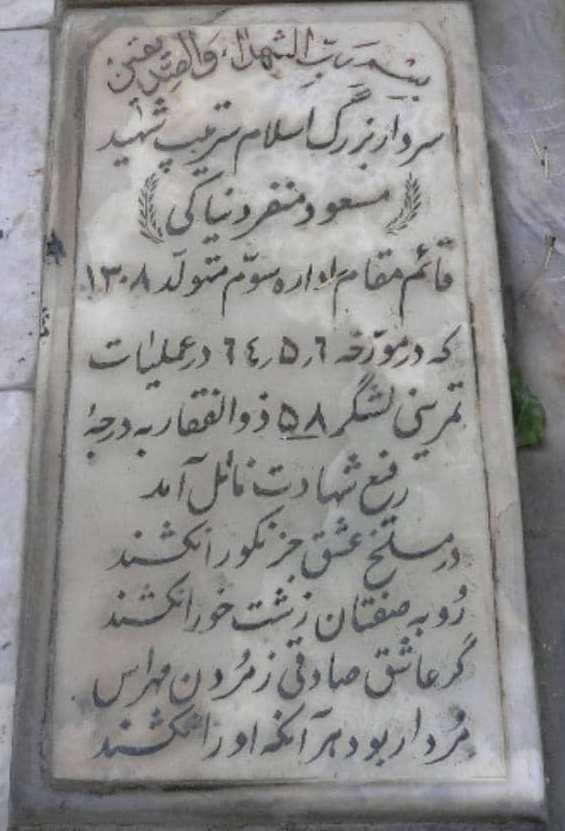 بسم رب الشهداء والصدیقین
سردار بزرگ اسلام سرتیپ شهید
مسعود منفرد نیاکی
قائم مقام اداره سوّم متولّد ۱۳۰۸
که در مورّخه ٦ر٥ر٦٤ در عملیات
تمرینی لشگر ٥٨ ذوالفقار به درجهٔ
رفیع شهادت نائل آمد
در مسلخ عشق جز نکو را نکشند
رُوبه صفتان زشت خو را نکشند
گر عاشق صادقی ز مُردن مهراس
مُردار بود هر آنکه او را نکشند